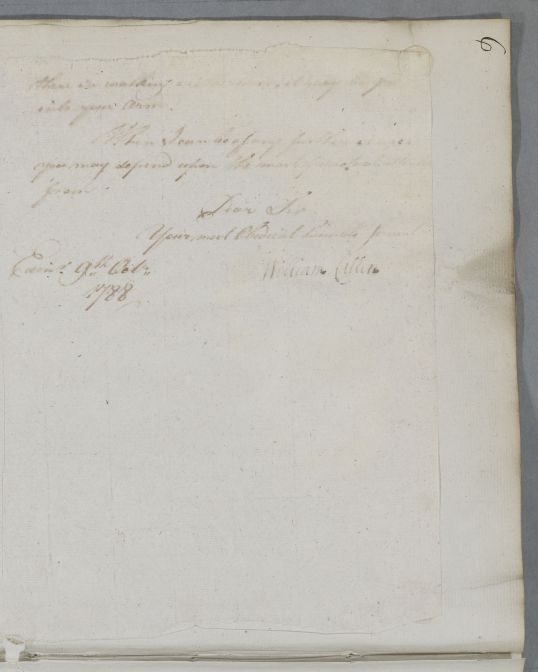 6
there is making
into your arm.
When I can be of any further
you may depend upon the most
from
Dear Sir
Your most Obedient humble servant
Edinr. 9th Octr. William Cullen
1788